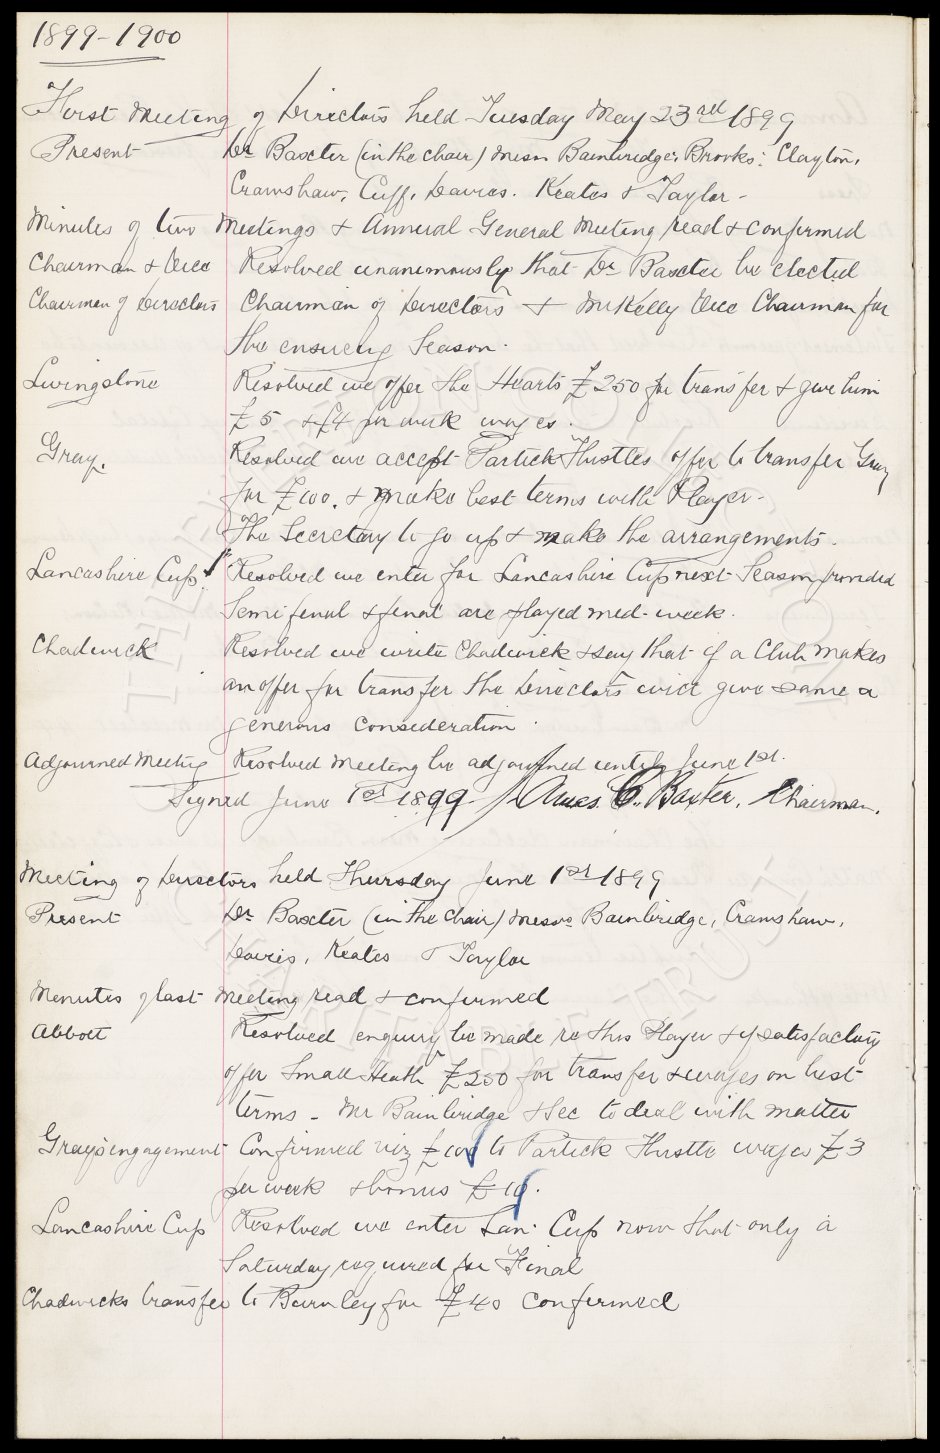 1899-1900
First Meeting of Directors held Tuesday May 23rd 1899
Present Dr Baxter (in the chair) Messrs Bainbridge, Brooks, Clayton,
Cramshaw, Cuff, Davies, Keates & Taylor -
Minutes of two Meetings & Annual General Meeting read & confirmed
Chairman & Vice Resolved unanimously that Dr Baxter be elected
Chairmen of Directors Chairman of Directors & Mr Kelly Vice Chairman for
the ensuing Season.
Livingstone Resolved we offer the Hearts £250 for transfer & give him
£5 & £4 per week wages.
Gray. Resolved we accept Partick Thistles offer to transfer Gray
for £100. & make best terms with Player -
The Secretary to go up & make the arrangements.
Lancashire Cup Resolved we enter for Lancashire Cup next Season provided
Semi final & final are played mid-week.
Chadwick Resolved we write Chadwick & say that if a Club makes
an offer for transfer the Directors will give same a
generous consideration.
Adjourned Meeting Resolved meeting be adjourned until June 1st.
Signed June 1st 1899 James C. Baxter, Chairman.
Meeting of Directors held Thursday June 1st 1899
Present Dr Baxter (in the chair) Messrs Bainbridge, Cramshaw,
Davies, Keates & Taylor
Minutes of last Meeting read & confirmed
Abbott Resolved enquiry be made re this Player & if satisfactory
offer Small Heath £250 for transfer & wages on best
terms - Mr Bainbridge & Sec to deal with matter
Gray's engagement Confirmed viz £100 to Partick Thistle wages £3
per week & bonus £10.
Lancashire Cup Resolved we enter Lan. Cup now that only a
Saturday required for Final
Chadwicks transfer to Burnley for £40 confirmed